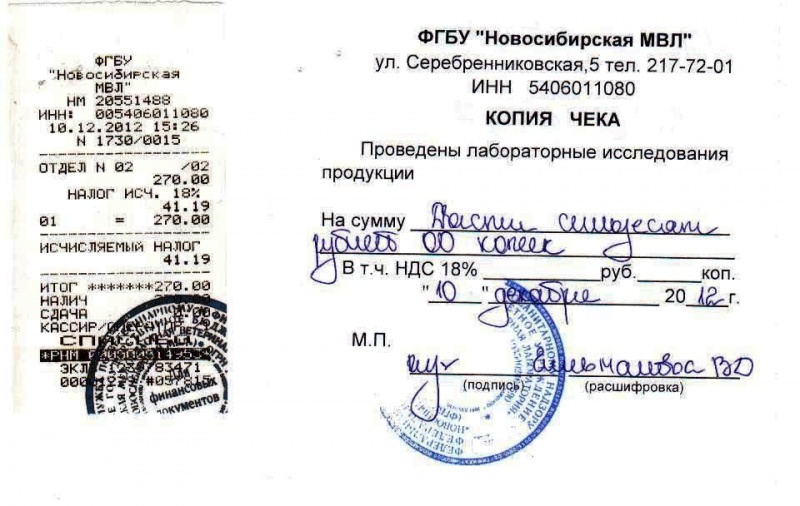 ФГБУ
"Новосибирская
МВЛ"
НМ 20551488
ИНН: 005406011080
10.12.2012 15:26
N 1730/0015
ОТДЕЛ N 02 /02
270.00
НАЛОГ ИСЧ. 18%
41.19
01 = 270.00
ИСЧИСЛЯЕМЫЙ НАЛОГ
41.19
ИТОГ *******270.00
НАЛИЧ
СДАЧА
КАССИР/
ЭКЛ 83471
для
финансовых
документов
ФГБУ "Новосибирская МВЛ"
ул. Серебренниковская,5 тел. 217-72-01
ИНН 5406011080
КОПИЯ ЧЕКА
Проведены лабораторные исследования
продукции
На сумму Двести семьдесят
рублей 00 копеек
В т.ч. НДС 18% руб. коп.
"10" декабря 2012 г.
М.П.
(подпись) (расшифровка)